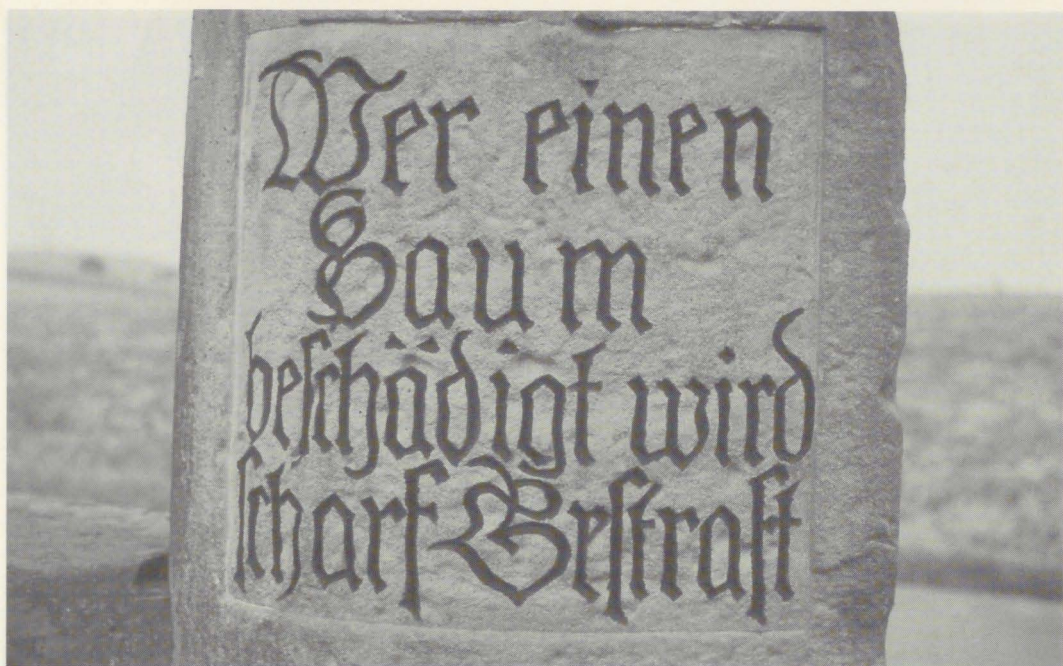 Wer einen
Baum
beſchädigt wird
ſcharf Beſtraft